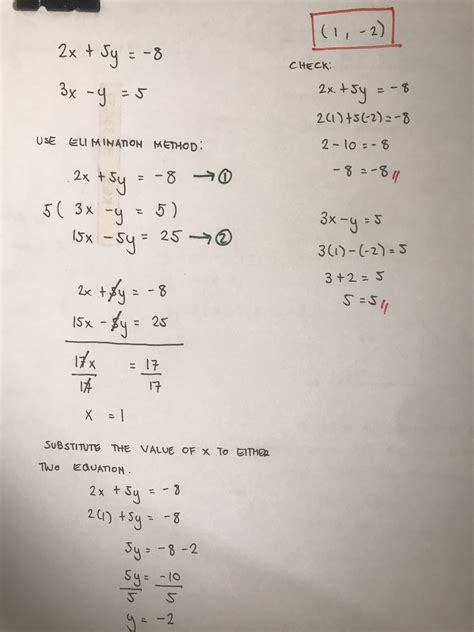 2x + 5y = -8
3x - y = 5
USE ELIMINATION METHOD:
2x + 5y = -8 → ①
5( 3x - y = 5 )
15x - 5y = 25 → ②
2x + 5y = -8
15x - 5y = 25
17x = 17
17 17
x = 1
SUBSTITUTE THE VALUE OF X TO EITHER
TWO EQUATION.
2x + 5y = -8
2(1) + 5y = -8
5y = -8 - 2
5y = -10
5 5
y = -2
(1, -2)
CHECK:
2x + 5y = -8
2(1) + 5(-2) = -8
2 - 10 = -8
-8 = -8 //
3x - y = 5
3(1) - (-2) = 5
3 + 2 = 5
5 = 5 //